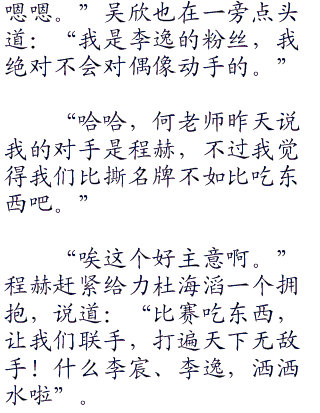 嗯嗯。”吴欣也在一旁点头
道：“我是李逸的粉丝，我
绝对不会对偶像动手的。”
“哈哈，何老师昨天说
我的对手是程赫，不过我觉
得我们比撕名牌不如比吃东
西吧。”
“唉这个好主意啊。”
程赫赶紧给力杜海滔一个拥
抱，说道：“比赛吃东西，
让我们联手，打遍天下无敌
手！什么李宸、李逸，洒洒
水啦”。